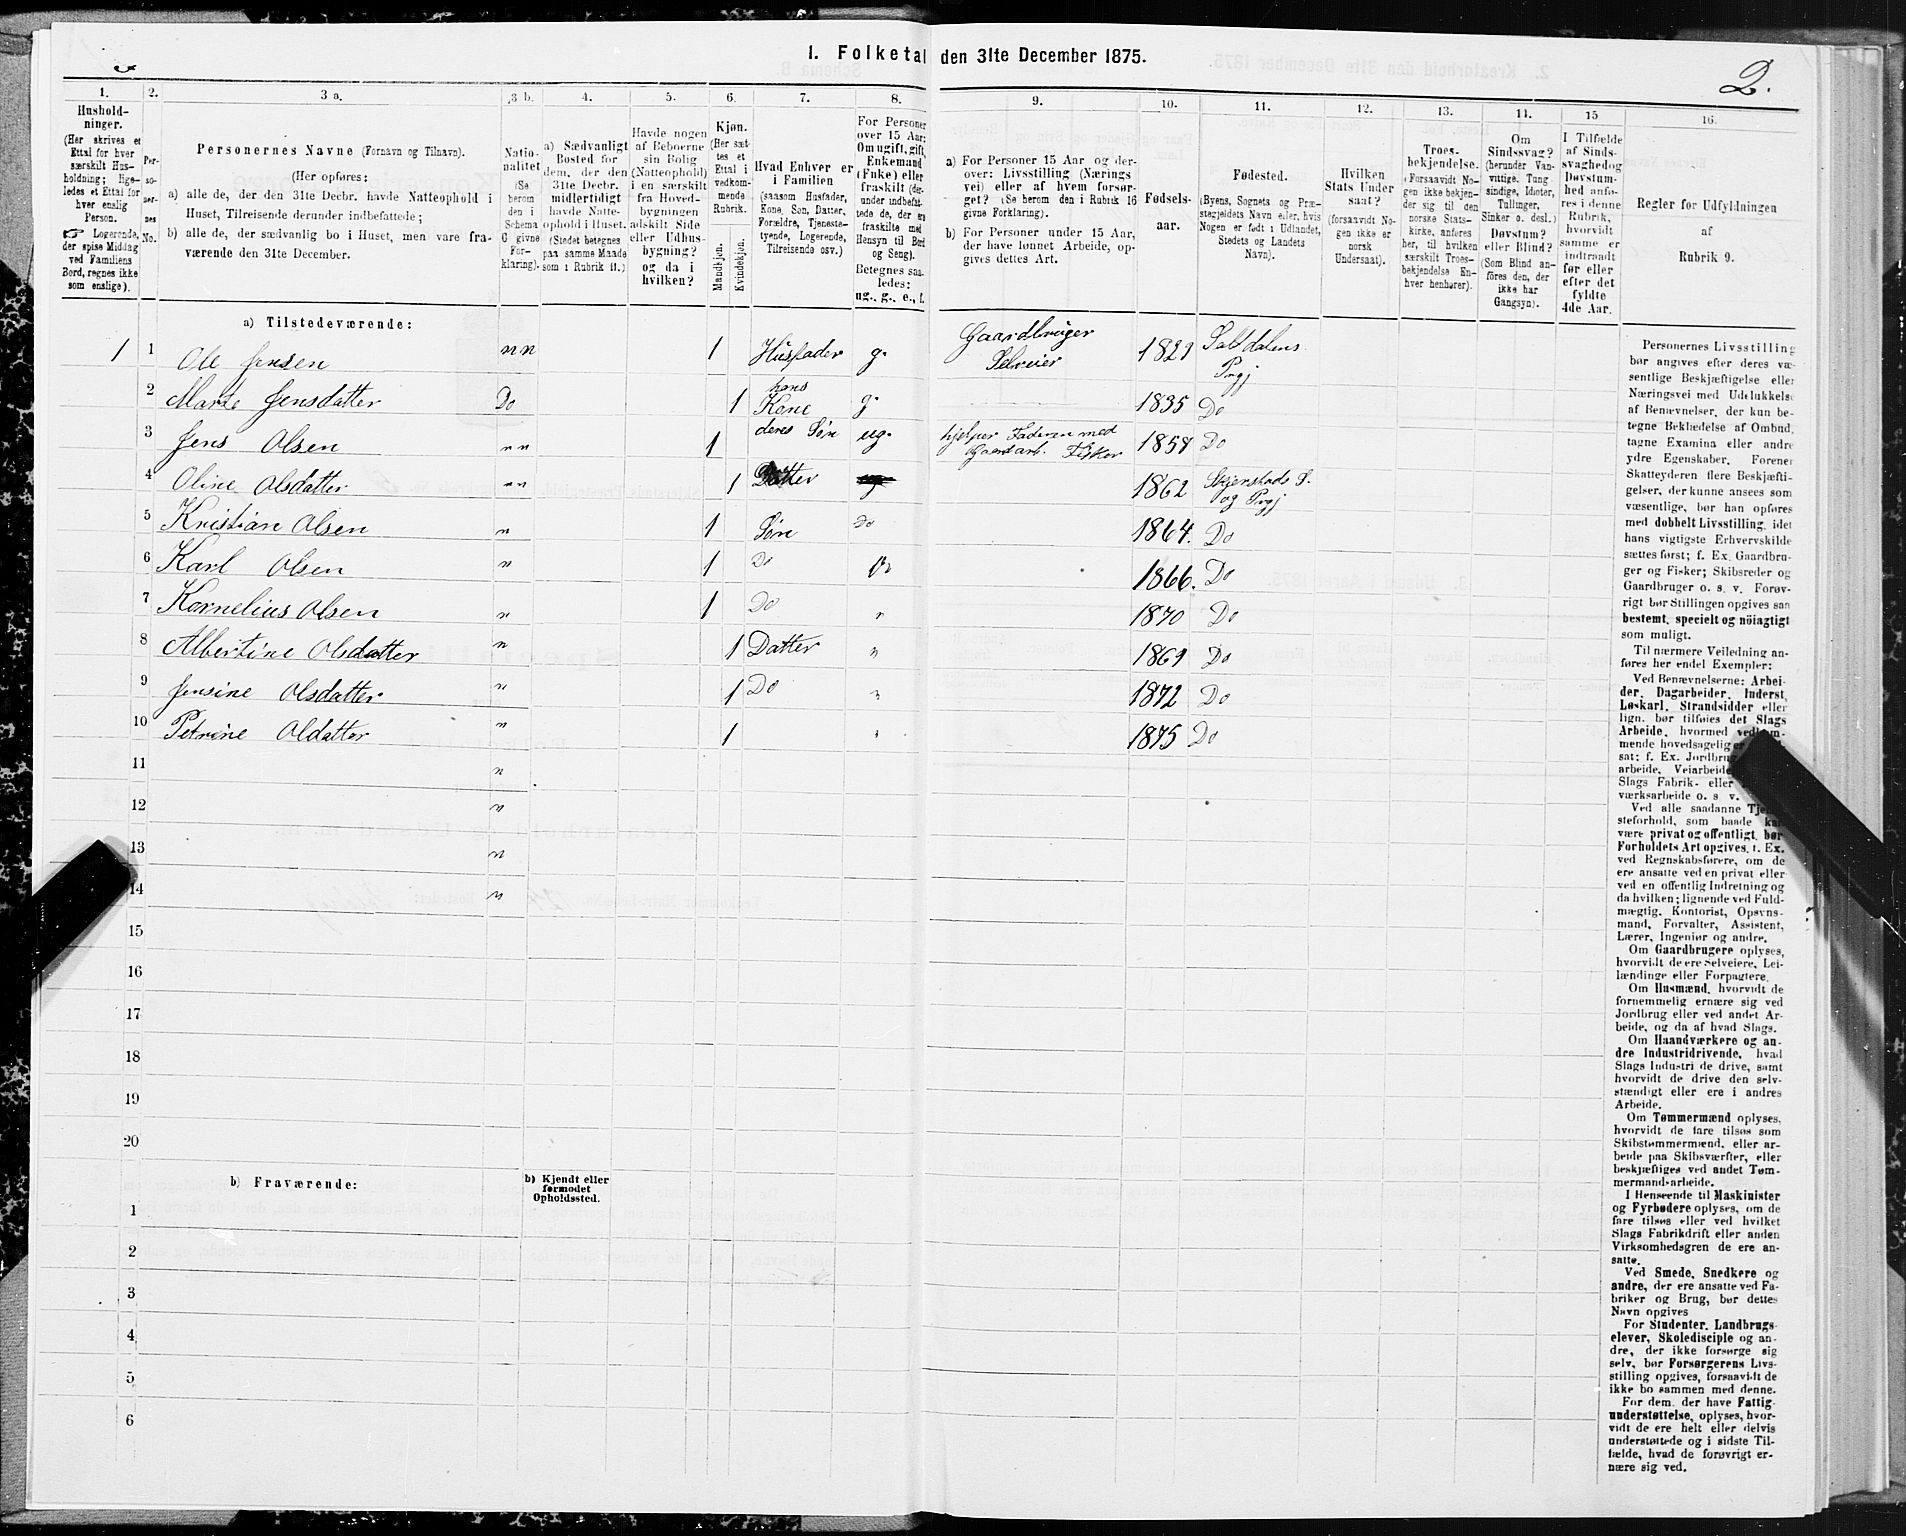 1. Folketal den 31te December 1875.
2.
1.
Hushold-
ninger.
(Her skrives et
Ettal for hver
særskilt Hus-
holdning; lige-
ledes et Ettal for
hver enslig
Person.
Logerende,
der spise Middag
ved Familiens
Bord, regnes ikke
som enslige).
2.
Per-
so-
ner-
nes
No.
3 a.
Personernes Navne (Fornavn og Tilnavn).
(Her opføres:
a) alle de, der den 31te Decbr. havde Natteophold i
Huset, Tilreisende derunder indbefattede;
b) alle de, der sædvanlig bo i Huset, men vare fra-
værende den 31te December.
3 b.
Natio-
nalitet
(Se
herom
den i
Schema
C givne
For-
klaring).
4.
a) Sædvanligt
Bosted for
dem, der den
31te Decbr.
midlertidigt
havde Natte-
ophold i Huset.
(Stedet betegnes
paa samme Maade
som i Rubrik 11.)
5.
Havde nogen
af Beboerne
sin Bolig
(Natteophold)
i en særskilt
fra Hoved-
bygningen
adskilt Side
eller Udhus-
bygning?
og da i
hvilken?
6.
Kjøn.
(Her sæt-
tes et
Ettal i
vedkom-
mende
Rubrik.
Mandkjøn.
Kvindekjøn.
7.
Hvad Enhver er
i Familien
(saasom Husfader,
Kone, Søn, Datter,
Forældre, Tjeneste-
tyende, Logerende,
Tilreisende osv.)
8.
For Personer
over 15 Aar:
Om ugift, gift,
Enkemand
(Enke) eller
fraskilt (der-
under indbefat-
tede de, der ere
fraskilte med
Hensyn til Bord
og Seng).
Betegnes saa-
ledes:
ug., g., e., f.
9.
a) For Personer 15 Aar og der-
over: Livsstilling (Nærings-
vei) eller af hvem forsør-
get? (Se herom den i Rubrik 16
givne Forklaring).
b) For Personer under 15 Aar,
der have lønnet Arbeide, op-
gives dettes Art.
10.
Fødsels-
aar.
11.
Fødested.
(Byens, Sognets og Præ-
stegjeldets Navn eller, hvis
Nogen er født i Udlandet,
Stedets og Landets
Navn).
12.
Hvilken
Stats Under-
saat?
(forsaavidt No-
gen ikke er
norsk
Undersaat).
13.
Troes-
bekjendelse.
(Forsaavidt No-
gen ikke bekjen-
der sig til den
norske Stats-
kirke, anføres
her, til hvilken
særskilt Troes-
bekjendelse En-
hver henhører).
14.
Om
Sindssvag?
(herunder Van-
vittige, Tung-
sindige, Idioter,
Tullinger,
Sinker o. desl.)
Døvstum?
eller Blind?
(Som Blind an-
føres den, der
ikke har
Gangsyn).
15
I Tilfælde
af Sinds-
svaghed og
Døvstum-
hed anfø-
res i denne
Rubrik,
hvorvidt
samme er
indtraadt
før eller
efter det
fyldte
4de Aar.
16.
Regler for Udfyldningen
af
Rubrik 9.
a) Tilstedeværende:
1 1 Ole Jensen nn 1 Husfader g. Gaardbruger Selveier 1829 Saltdalens Prgj
2 Marte Jensdatter Do 1 hans Kone g. 1835 Do
3 Jens Olsen " " 1 deres Søn ug. hjelper Faderen med Gaardarb. Fisker 1858 Do
4 Oline Olsdatter " " 1 Datter 1862 Skjerstads S. og Prgj
5 Kristian Olsen " 1 Søn Do 1864. Do
6 Karl Olsen " 1 Do 1866. Do
7 Kornelius Olsen " 1 Do " 1870 Do
8 Albertine Olsdatter " 1 Datter " 1869 Do
9 Jensine Olsdatter " 1 Do " 1872 Do
10 Petrine Oldatter " 1 " 1875 Do
11 "
12 "
13 "
14 "
15
16
17
18
19
20
b) Fraværende:
b) Kjendt eller
formodet
Opholdssted.
1
2
3
4
5
6
Personernes Livsstilling
bør angives efter deres væ-
sentlige Beskjæftigelse eller
Næringsvei med Udelukkelse
af Benævnelser, der kun be-
tegne Beklædelse af Ombud,
tagne Examina eller andre
ydre Egenskaber. Forener
Skatteyderen flere Beskjæfti-
gelser, der kunne ansees som
væsentlige, bør han opføres
med dobbelt Livsstilling, idet
hans vigtigste Erhvervskilde
sættes først; f. Ex. Gaardbru-
ger og Fisker; Skibsreder og
Gaardbruger o. s. v. Forøv-
rigt bør Stillingen opgives saa
bestemt, specielt og nöiagtigt
som muligt.
Til nærmere Veiledning an-
føres her endel Exempler:
Ved Benævnelserne: Arbei-
der, Dagarbeider, Inderst,
Løskarl, Strandsidder eller
lign. bør tilføies det Slags
Arbeide, hvormed
mende hovedsagelig er
sat; f. Ex.
arbeide,
Slags Fabrik- eller
værksarbeide o. s v.
Ved alle saadanne
steforhold, som baade
være privat og offentligt, bør
Forholdets Art opgives, f. Ex.
ved Regnskabsførere, om de
ere ansatte ved en privat eller
ved en offentlig Indretning og
da hvilken; lignende ved Fuld-
mægtig, Kontorist, Opsyns-
mand, Forvalter, Assistent,
Lærer, Ingeniør og andre.
Om Gaardbrugere oplyses,
hvorvidt de ere Selveiere, Lei-
lændinge eller Forpagtere.
Om Husmænd, hvorvidt de
fornemmelig ernære sig ved
Jordbrug eller ved andet Ar-
beide, og da af hvad Slags.
Om Haandværkere og an-
dre Industridrivende, hvad
Slags Industri de drive, samt
hvorvidt de drive den selv-
stændigt eller ere i andres
Arbeide.
Om Tømmermænd oplyses,
hvorvidt de fare tilsøs som
Skibstømmermænd, eller ar-
beide paa Skibsværfter, eller
beskjæftiges ved andet Tøm-
mermandsarbeide.
I Henseende til Maskinister
og Fyrbødere oplyses, om de
fare tilsøs eller ved hvilket
Slags Fabrikdrift eller anden
Virksomhedsgren de ere an-
satte.
Ved Smede, Snedkere og
andre, der ere ansatte ved Fa-
briker og Brug, bør dettes
Navn opgives
For Studenter, Landbrugs-
elever, Skoledisciple og an-
dre, der ikke forsørge sig
selv, bør Forsørgerens Livs-
stilling opgives, forsaavidt de
ikke bo sammen med denne.
For dem, der have Fattig-
understøttelse, oplyses, hvor-
vidt de ere helt eller delvis
understøttede og i sidste Til-
fælde, hvad de forøvrigt er-
nære sig ved.